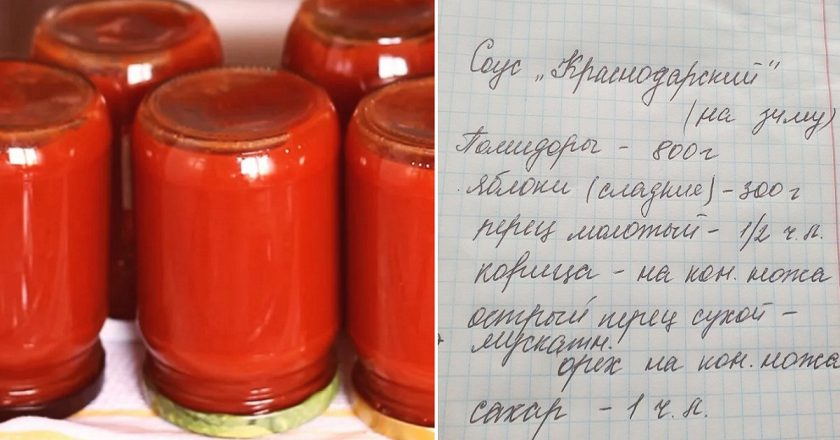 Соус „Краснодарский"
(на зиму)
Помидоры - 800 г
яблоки (сладкие) - 300 г
перец молотый - 1/2 ч.л.
корица - на кон. ножа
острый перец сухой -
мускатн.
орех на кон. ножа
сахар - 1 ч.л.